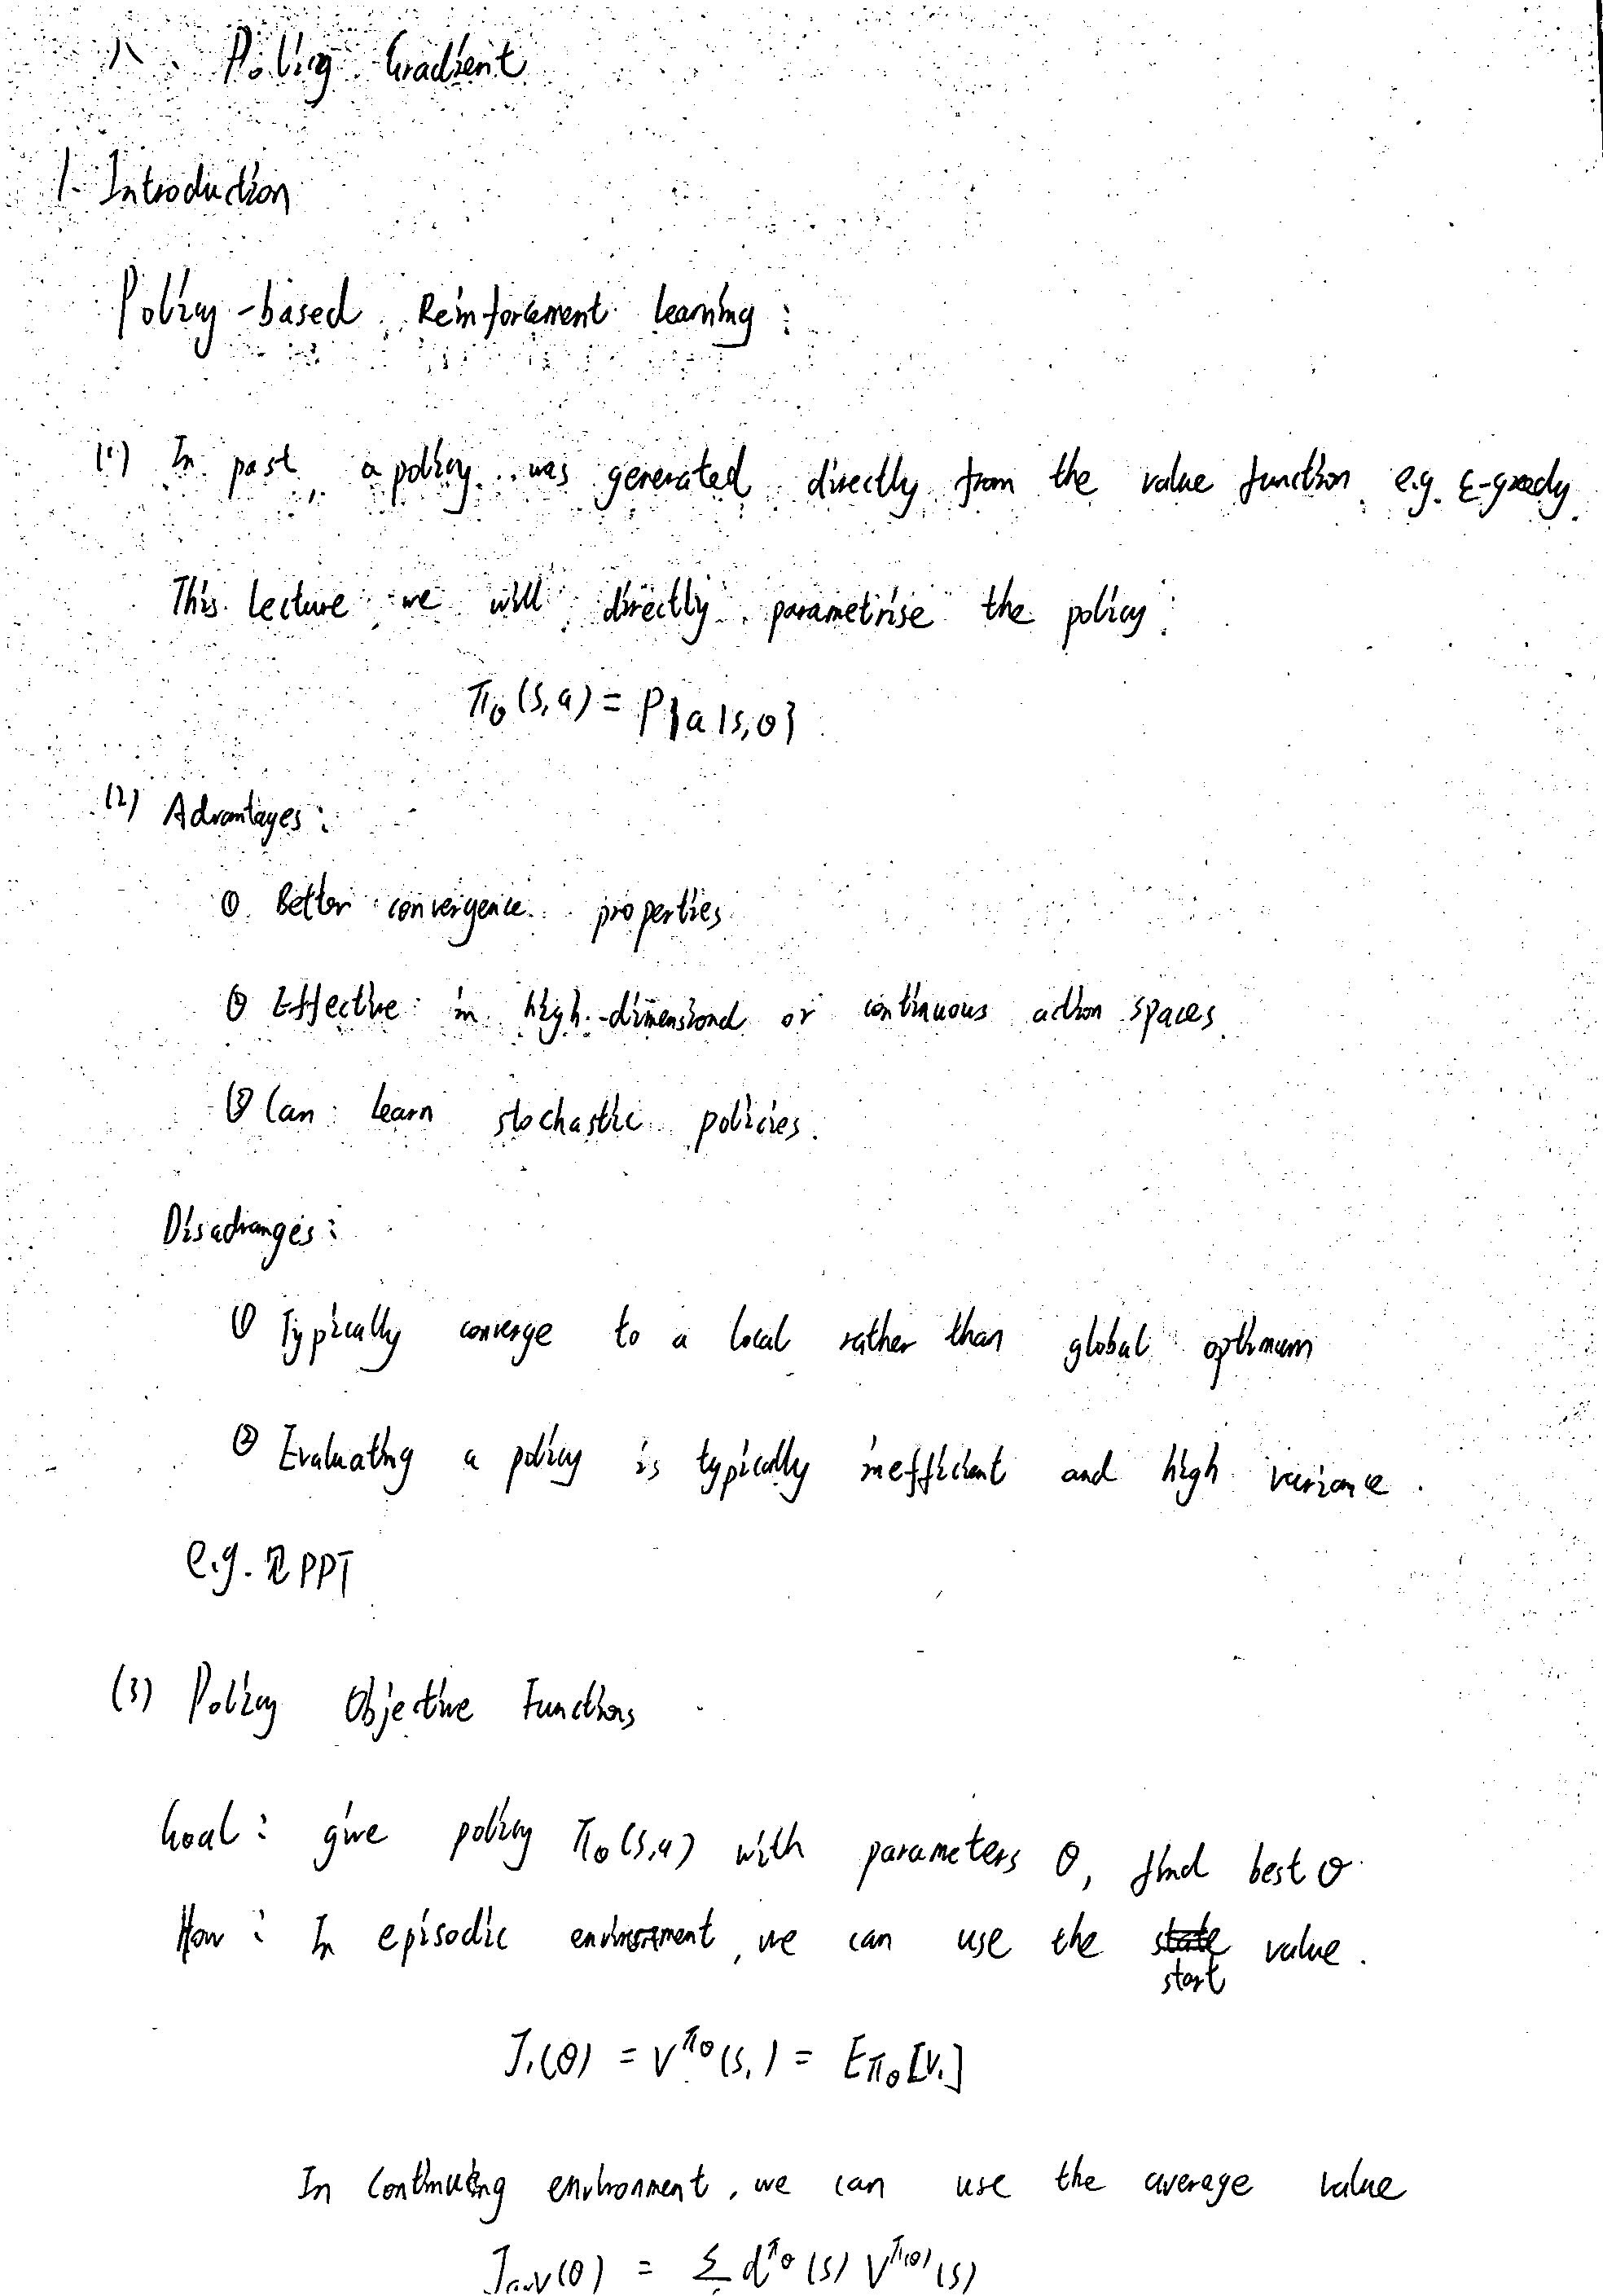 八. Policy Gradient
1. Introduction
Policy-based Reinforcement learning:
(1) In past, a policy was generated directly from the value function e.g. ε-greedy.
This lecture we will directly parametrise the policy:
πθ(s,a) = P{a|s,θ}
(2) Advantages:
① Better convergence properties
② Effective in high-dimensional or continuous action spaces.
③ Can learn stochastic policies.
Disadvanges:
① Typically converge to a local rather than global optimum
② Evaluating a policy is typically inefficient and high variance.
e.g. 见PPT
(3) Policy Objective Functions
Goal: give policy πθ(s,a) with parameters θ, find best θ
How: In episodic environment, we can use the state value.
start
J₁(θ) = V^πθ(s₁) = Eπθ[V₁]
In continuing environment, we can use the average value
JavV(θ) = Σ d^πθ(s) V^π(θ)(s)